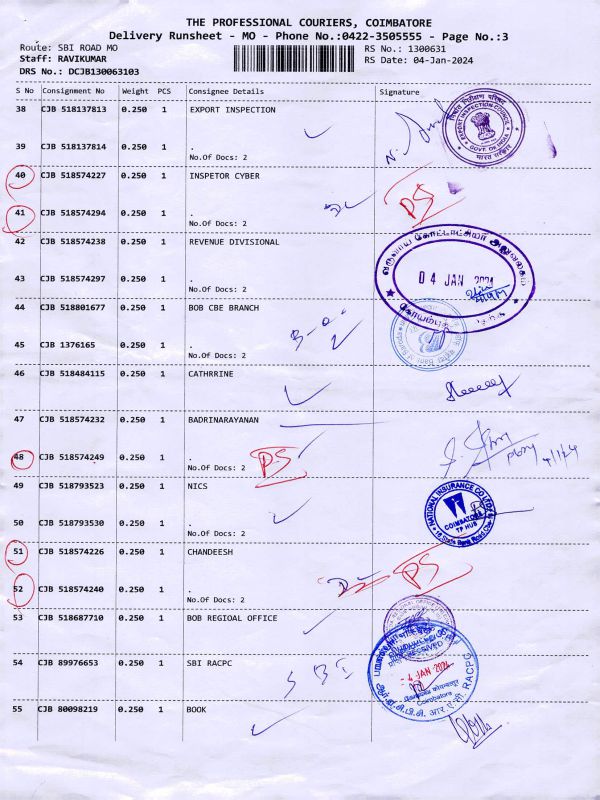 THE PROFESSIONAL COURIERS, COIMBATORE
Delivery Runsheet - MO - Phone No.:0422-3505555 - Page No.:3
Route: SBI ROAD MO
RS No.: 1300631
Staff: RAVIKUMAR
RS Date: 04-Jan-2024
DRS No.: DCJB130063103
S No Consignment No Weight PCS Consignee Details Signature
38 CJB 518137813 0.250 1 EXPORT INSPECTION
39 CJB 518137814 0.250 1 .
No.Of Docs: 2
EXPORT INSPECTION COUNCIL
GOVT. OF INDIA
भारत सरकार
40 CJB 518574227 0.250 1 INSPETOR CYBER
PS
41 CJB 518574294 0.250 1 .
No.Of Docs: 2
42 CJB 518574238 0.250 1 REVENUE DIVISIONAL
04 JAN 2024
43 CJB 518574297 0.250 1 .
No.Of Docs: 2
44 CJB 518801677 0.250 1 BOB CBE BRANCH
45 CJB 1376165 0.250 1 .
No.Of Docs: 2
46 CJB 518484115 0.250 1 CATHRRINE
47 CJB 518574232 0.250 1 BADRINARAYANAN
48 CJB 518574249 0.250 1 .
No.Of Docs: 2
PS
4/1/24
49 CJB 518793523 0.250 1 NICS
NATIONAL INSURANCE CO LTD
COIMBATORE
TP HUB
50 CJB 518793530 0.250 1 .
No.Of Docs: 2
51 CJB 518574226 0.250 1 CHANDEESH
PS
52 CJB 518574240 0.250 1 .
No.Of Docs: 2
53 CJB 518687710 0.250 1 BOB REGIOAL OFFICE
54 CJB 89976653 0.250 1 SBI RACPC
SBI
- 4 JAN 2024
Coimbatore
RACPC
55 CJB 80098219 0.250 1 BOOK